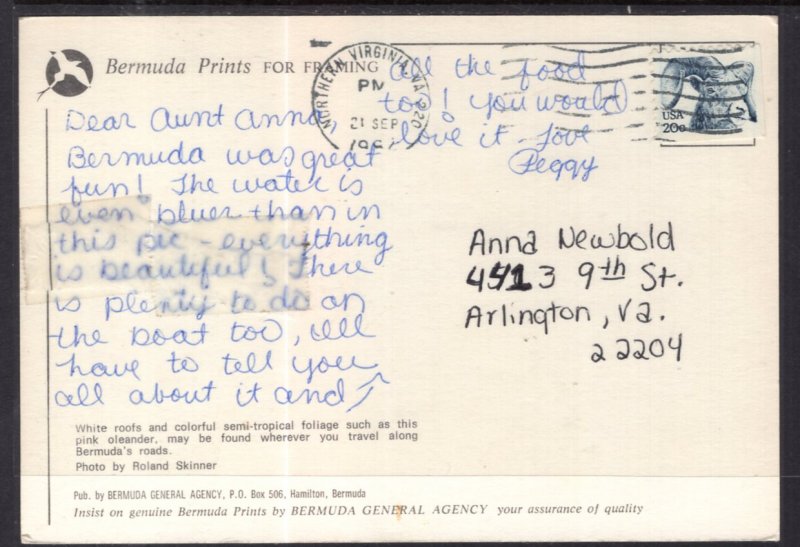 Bermuda Prints FOR FRAMING
NORTHERN VIRGINIA, VA 220
PM
21 SEP
USA
20c
Dear Aunt Anna,
Bermuda was great
fun! The water is
even bluer than in
this pic - everything
is beautiful! There
is plenty to do on
the boat too, will
have to tell you
all about it and
all the food
too! You would
love it - Love
Peggy
Anna Newbold
4913 9th St.
Arlington, Va.
22204
White roofs and colorful semi-tropical foliage such as this
pink oleander, may be found wherever you travel along
Bermuda's roads.
Photo by Roland Skinner
Pub. by BERMUDA GENERAL AGENCY, P.O. Box 506, Hamilton, Bermuda
Insist on genuine Bermuda Prints by BERMUDA GENERAL AGENCY your assurance of quality